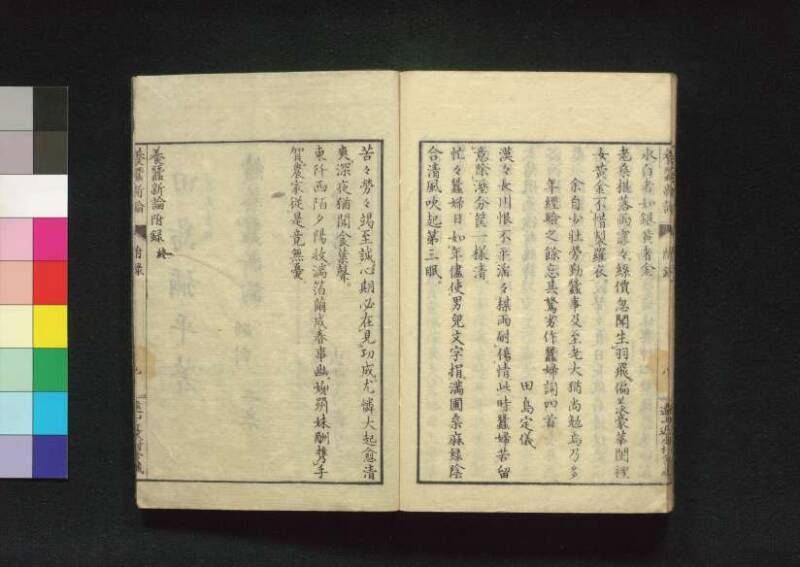 水白者如銀黄者金
老桑摧落雨霏々繰價忽聞生羽飛偏羨豪華閨裡
女黄金不惜製羅衣
余自少壮勞勤蠶事及至老大猶尚勉焉乃多
年經驗之餘忘其駑劣作蠶婦詞四首
田島定儀
漠々長川恨不乘濔々採雨耐傷情此時蠶婦苦留
意除沙分筐一樣清
忙々蠶婦日如年儘使男兒文字捐滿圃桑麻緑陰
合清風吹起第三眠
苦々勞々竭至誠心期必在見功成尤憐大起愈清
爽深夜猶聞食葉聲
東阡西陌夕陽收滿箔繭成春事幽姉別妹酬携手
賀農家從是竟無憂
養蠶新論附録 終
養蠶新論
附録
九